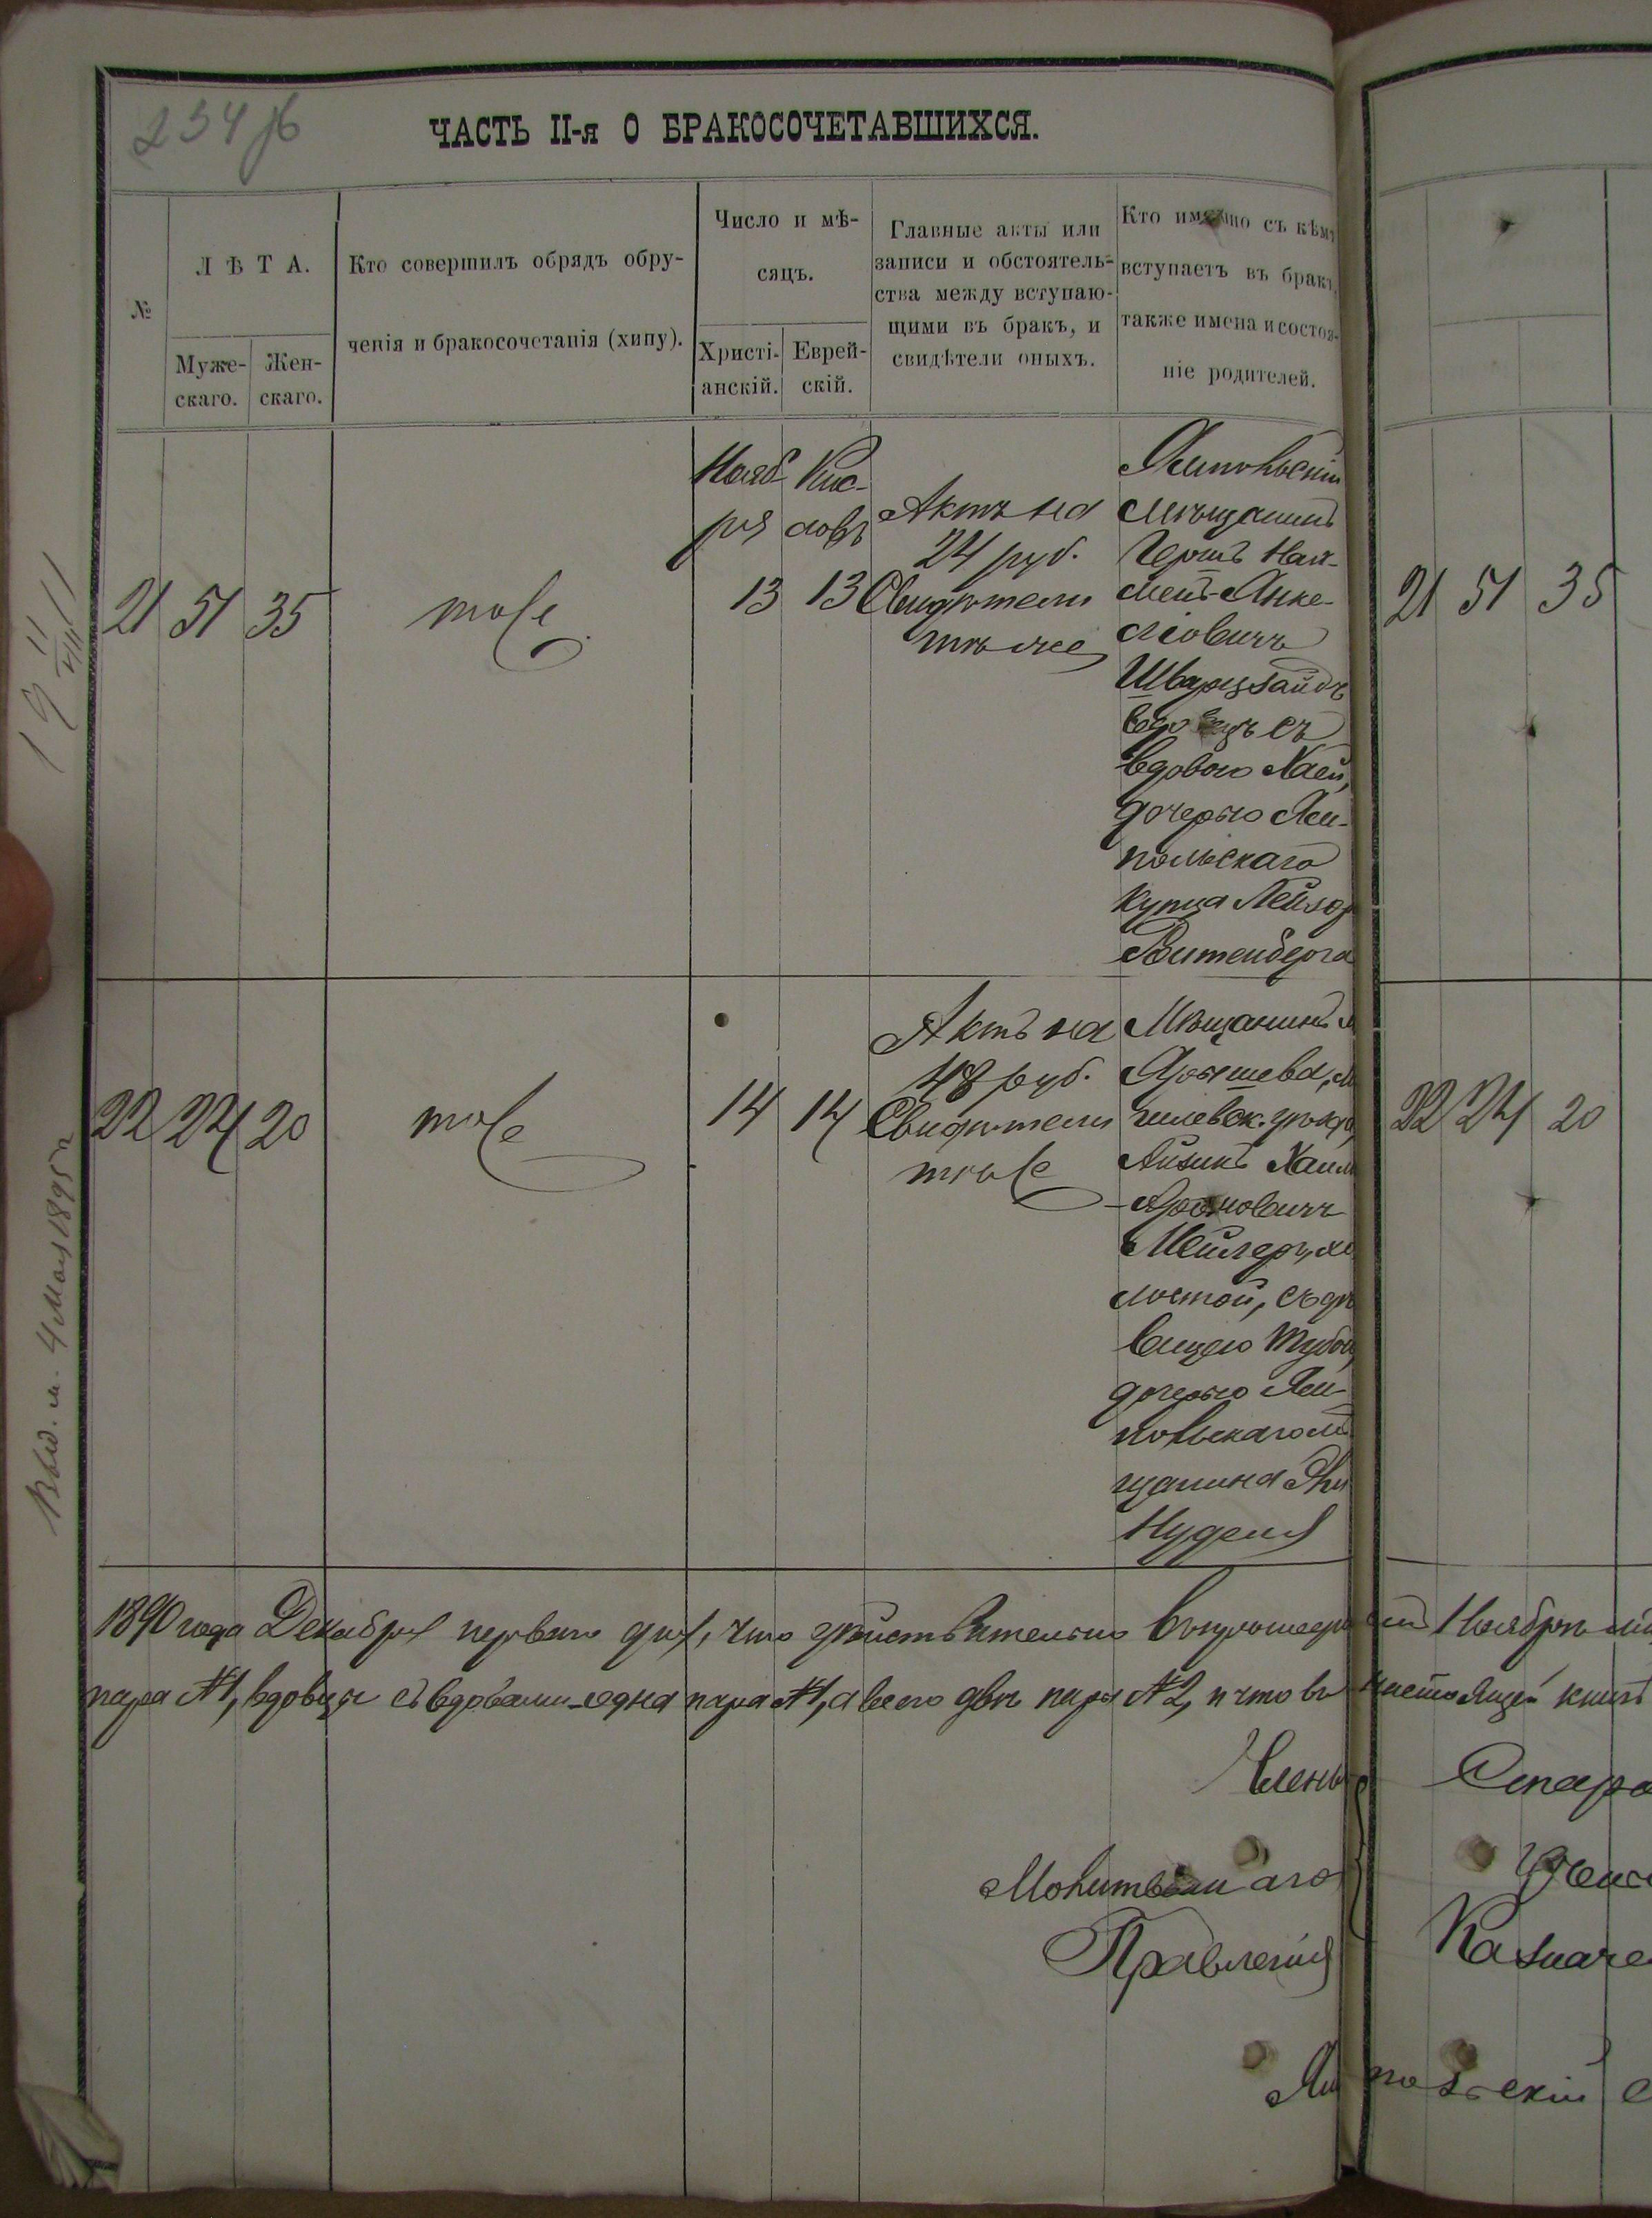 ЧАСТЬ II-я О БРАКОСОЧЕТАВШИХСЯ.
№
ЛѢТА.
Муже-
скаго.
Жен-
скаго.
Кто совершилъ обрядъ обру-
ченія и бракосочетанія (хипу).
Число и мѣ-
сяцъ.
Христі-
анскій.
Еврей-
скій.
Главные акты или
записи и обстоятель-
ства между вступаю-
щими въ бракъ, и
свидѣтели оныхъ.
Кто именно съ кѣмъ
вступаетъ въ бракъ,
также имена и состоя-
ніе родителей.
21 51 35
тоже
Нояб-
ря
13
Кис-
левъ
13
Актъ на
24 руб.
Свидѣтели
тѣ же
Ямпольскій
мѣщанинъ
Гершъ Най-
менъ Янке-
ліовичъ
Шварцзайдъ
вдовецъ съ
вдовою Хаей,
дочерью Ям-
польскаго
купца Лейзор
Витенберга
21 51 35
22 24 20
тоже
14 14
Актъ на
48 руб.
Свидѣтели
тѣже
Мѣщанинъ м
Ярышева, М
гилевск. уѣзда
Айзикъ Хаим
-Ароновичъ
Мейлеръ, хо
лостой, съ дѣ
вицею Тубой
дочерью Ям-
польскаго мѣ
щанина
Нуделя
22 24 20
1890 года Декабря перваго дня, что дѣйствительно въ прошедшемъ Ноябрѣ
пара №1, вдовцы съ вдовами одна пара №1, а всего двѣ пары №2, и что въ настоящей книгѣ
Члены
Старо
Молитвеннаго
Учен
Правленія
Казначе
Ямпольскій
Выд. м. 4 Мая 1895 г.